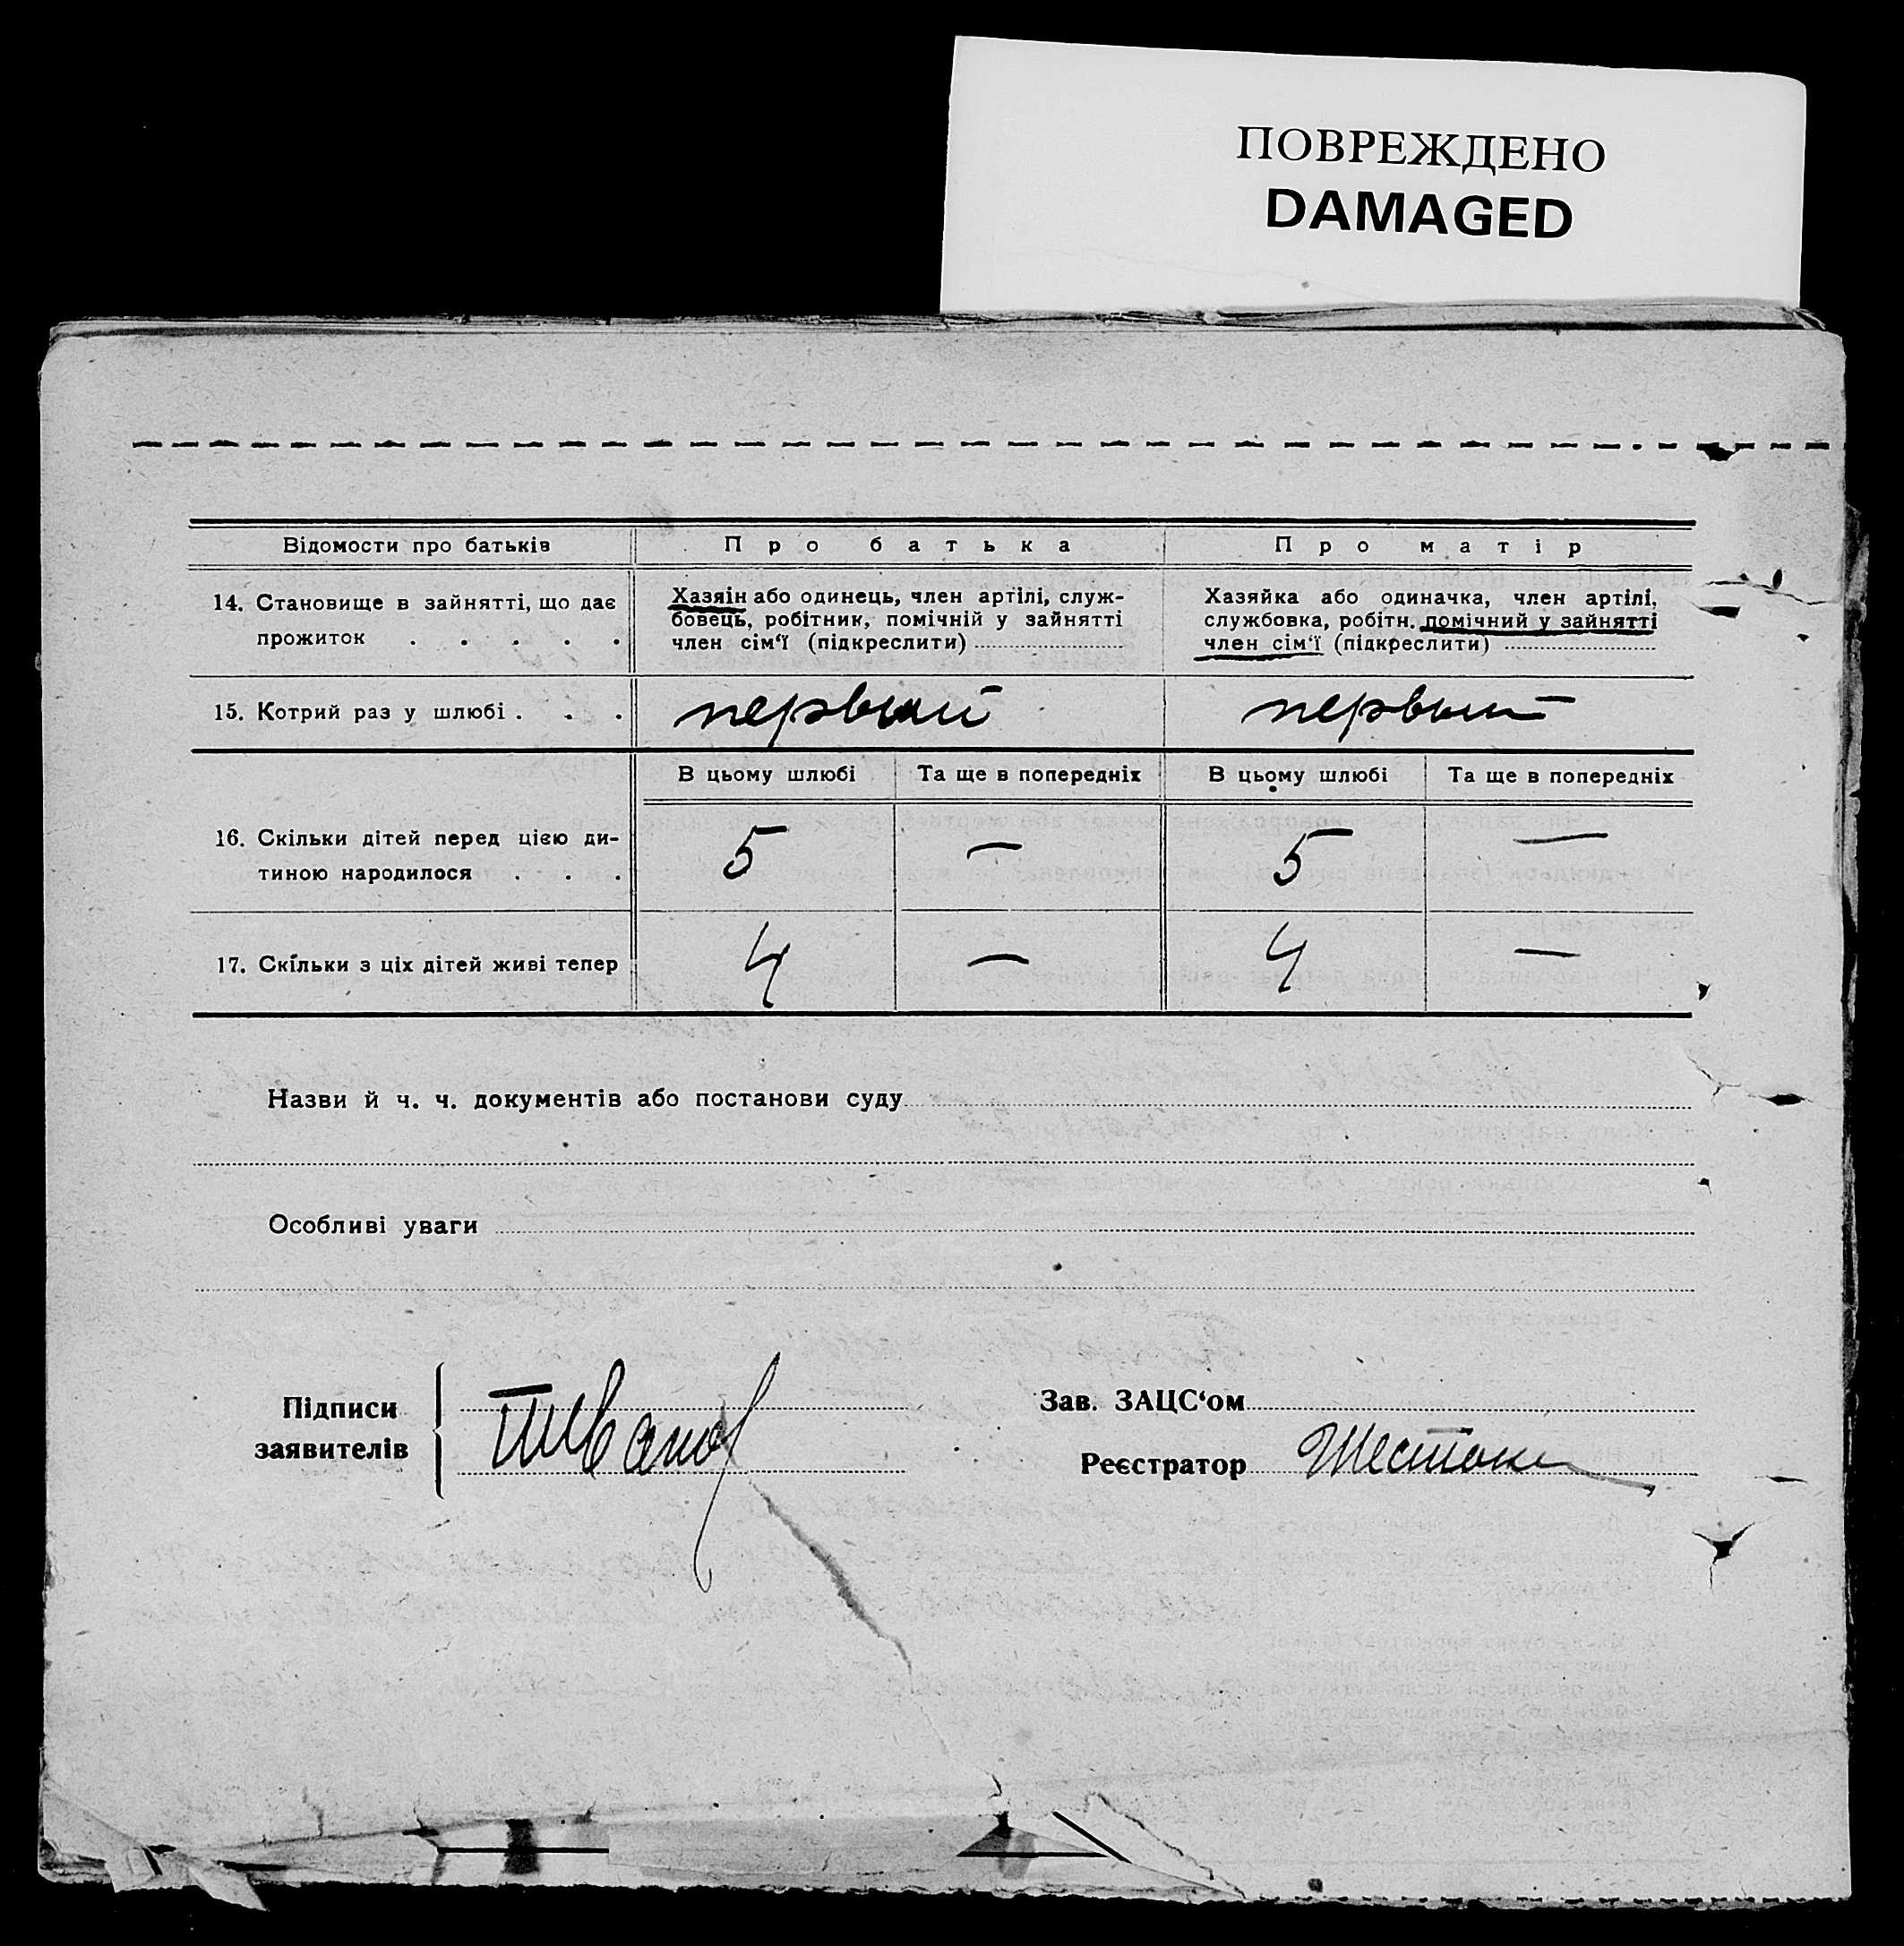 ПОВРЕЖДЕНО
DAMAGED
Відомости про батьків
Про батька
Про матір
14. Становище в зайнятті, що дає
прожиток . . . . .
Хазяін або одинець, член артілі, служ-
бовець, робітник, помічній у зайнятті
член сім‘ї (підкреслити)
Хазяйка або одиначка, член артілі,
службовка, робітн. помічний у зайнятті
член сім‘ї (підкреслити)
15. Котрий раз у шлюбі . . .
первый
первый
В цьому шлюбі
Та ще в попередніх
В цьому шлюбі
Та ще в попередніх
16. Скільки дітей перед цією ди-
тиною народилося . . .
5
—
5
—
17. Скільки з ціх дітей живі тепер
4
—
4
—
Назви й ч. ч. документів або постанови суду
Особливі уваги
Підписи
заявителів
Зав. ЗАЦС‘ом
Реєстратор